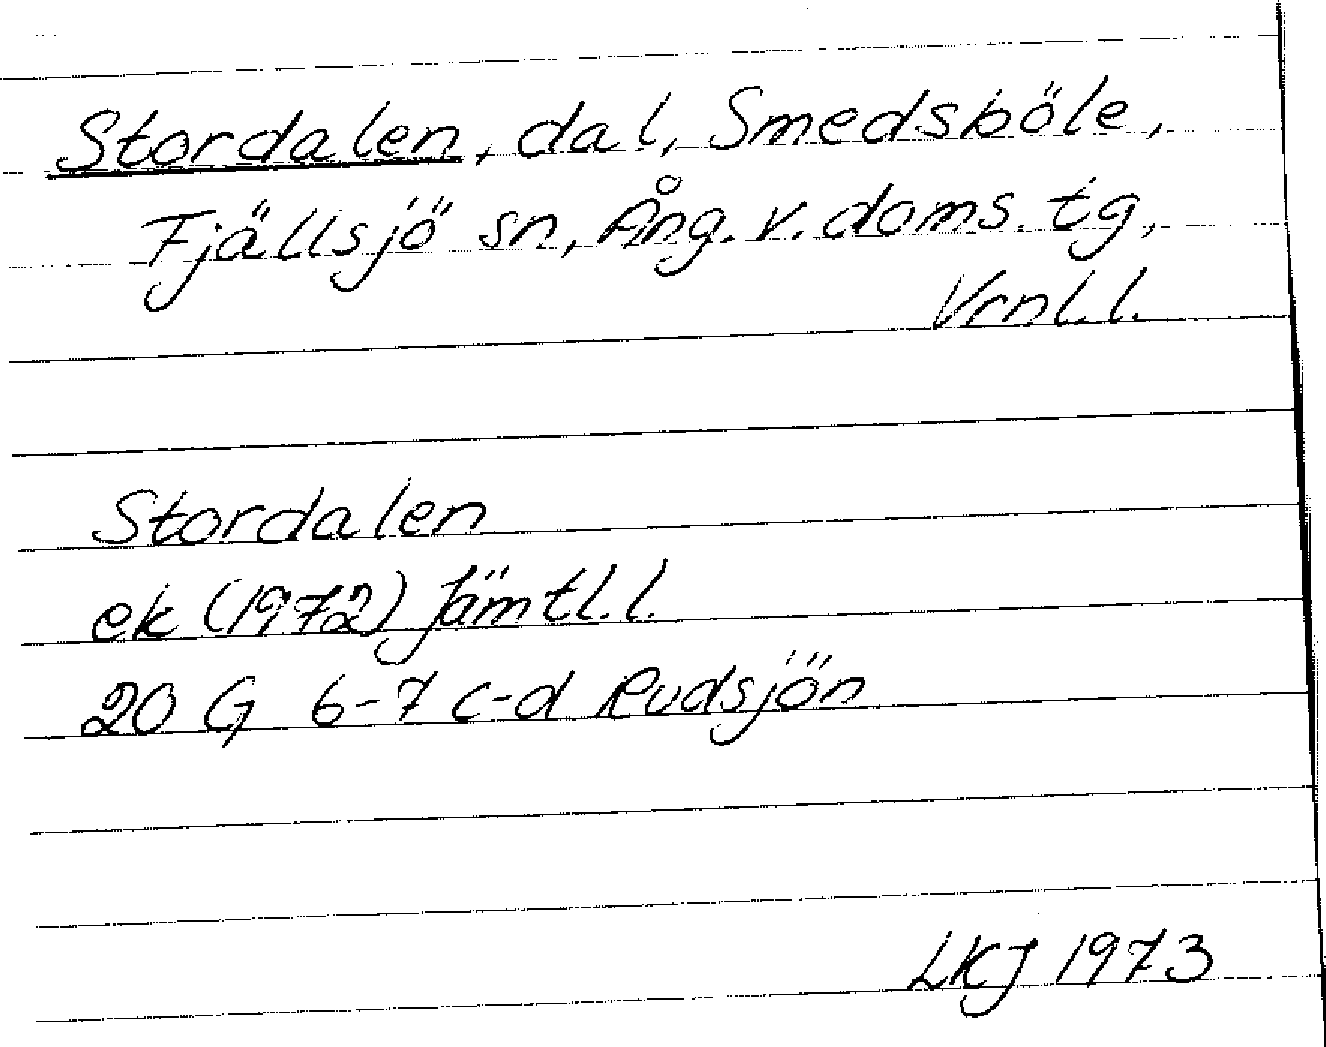 Stordalen, dal, Smedsböle,
Fjällsjö sn, Ång. v. doms. tg,
Vrnl. l.
Stordalen
ek (1972) Jämtl. l.
20 G 6-7 c-d Rudsjön
LKJ 1973